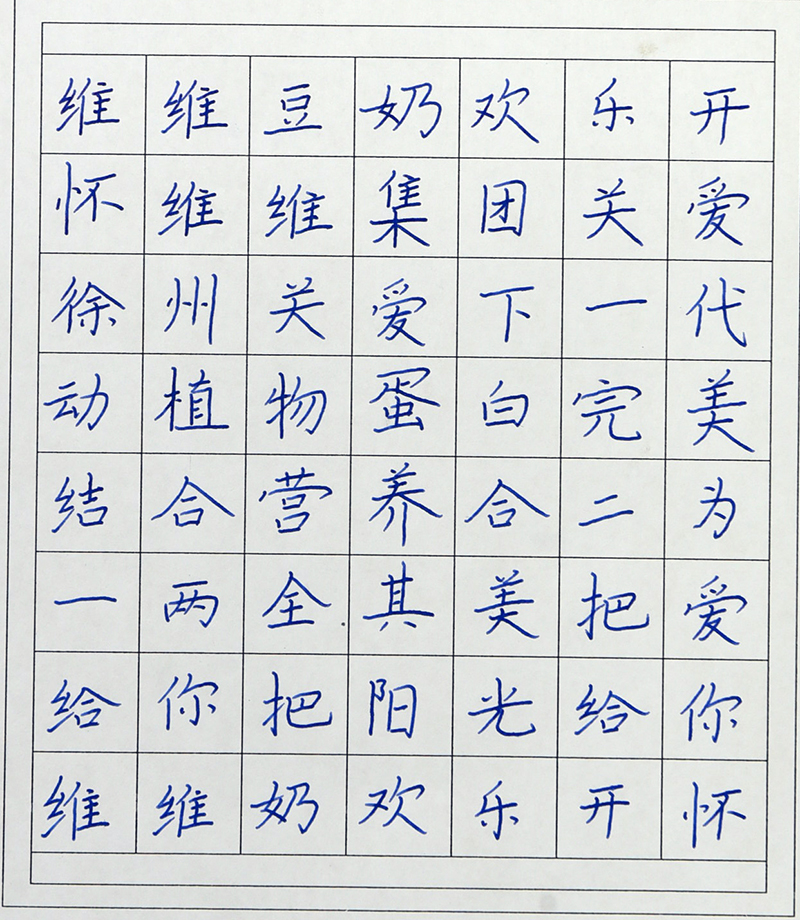 维维豆奶欢乐开
怀维维集团关爱
徐州关爱下一代
动植物蛋白完美
结合营养合二为
一两全其美把爱
给你把阳光给你
维维奶欢乐开怀